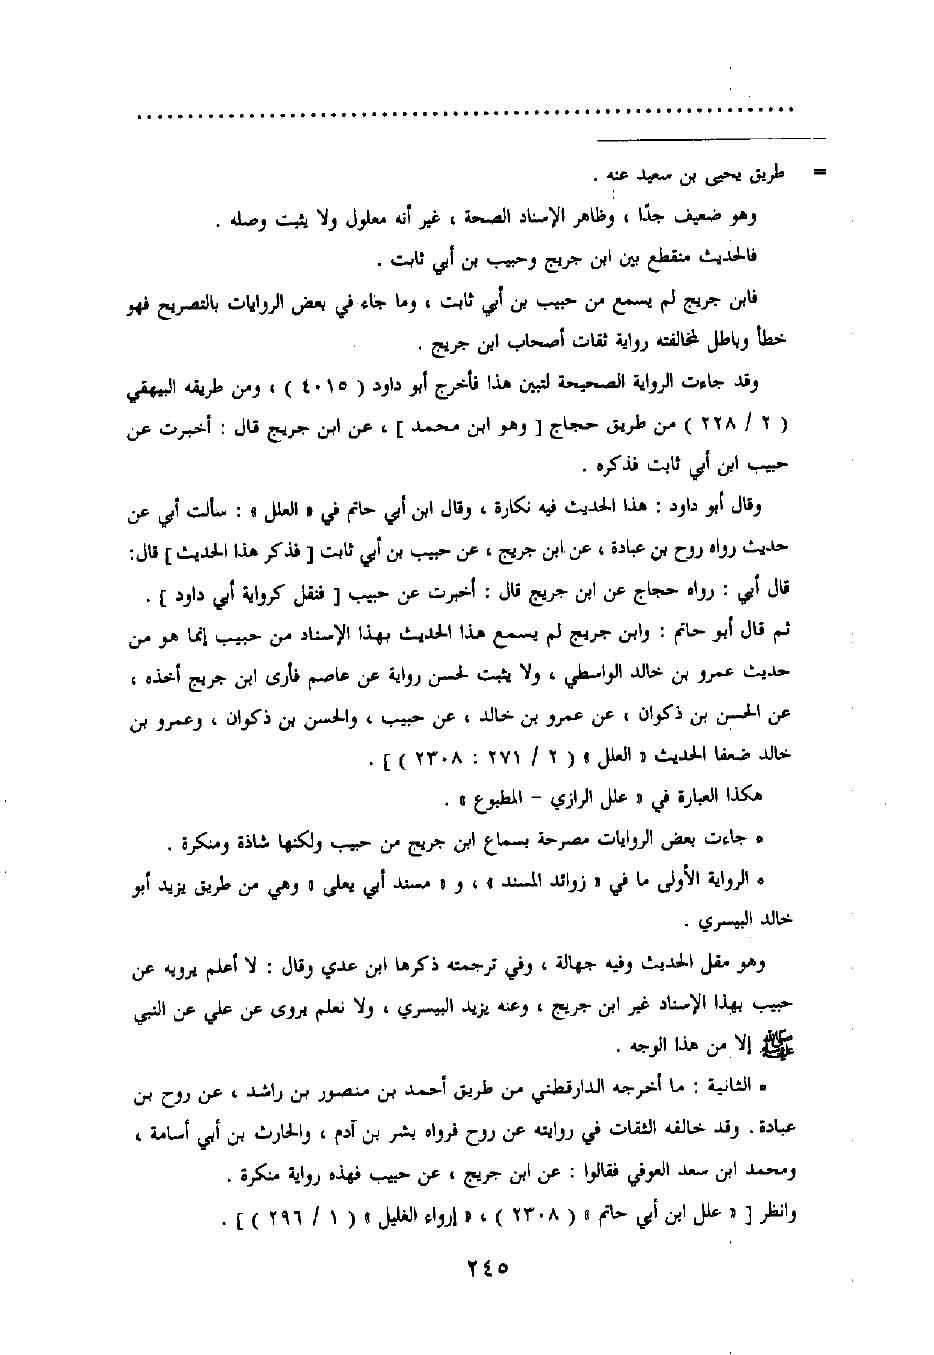 = طريق يحيى بن سعيد عنه .
وهو ضعيف جدًا ، وظاهر الإسناد الصحة ، غير أنه معلول ولا يثبت وصله .
فالحديث منقطع بين ابن جريج وحبيب بن أبي ثابت .
فابن جريج لم يسمع من حبيب بن أبي ثابت ، وما جاء في بعض الروايات بالتصريح فهو
خطأ وباطل لمخالفته رواية ثقات أصحاب ابن جريج .
وقد جاءت الرواية الصحيحة لتبين هذا فأخرج أبو داود ( ٤٠١٥ ) ، ومن طريقه البيهقي
( ٢ / ٢٢٨ ) من طريق حجاج [ وهو ابن محمد ] ، عن ابن جريج قال : أخبرت عن
حبيب ابن أبي ثابت فذكره .
وقال أبو داود : هذا الحديث فيه نكارة ، وقال ابن أبي حاتم في « العلل » : سألت أبي عن
حديث رواه روح بن عبادة ، عن ابن جريج ، عن حبيب بن أبي ثابت [ فذكر هذا الحديث ] قال:
قال أبي : رواه حجاج عن ابن جريج قال : أخبرت عن حبيب [ فنقل كرواية أبي داود ] .
ثم قال أبو حاتم : وابن جريج لم يسمع هذا الحديث بهذا الإسناد من حبيب إنما هو من
حديث عمرو بن خالد الواسطي ، ولا يثبت لحسن رواية عن عاصم فأرى ابن جريج أخذه ،
عن الحسن بن ذكوان ، عن عمرو بن خالد ، عن حبيب ، والحسن بن ذكوان ، وعمرو بن
خالد ضعفا الحديث « العلل » ( ٢ / ٢٧١ : ٢٣٠٨ ) ] .
هكذا العبارة في « علل الرازي – المطبوع » .
* جاءت بعض الروايات مصرحة بسماع ابن جريج من حبيب ولكنها شاذة ومنكرة .
* الرواية الأولى ما في « زوائد المسند » ، و « مسند أبي يعلى » وهي من طريق يزيد أبو
خالد البيسري .
وهو مقل الحديث وفيه جهالة ، وفي ترجمته ذكرها ابن عدي وقال : لا أعلم يرويه عن
حبيب بهذا الإسناد غير ابن جريج ، وعنه يزيد البيسري ، ولا نعلم يروى عن علي عن النبي
ﷺ إلا من هذا الوجه .
* الثانية : ما أخرجه الدارقطني من طريق أحمد بن منصور بن راشد ، عن روح بن
عبادة . وقد خالفه الثقات في روايته عن روح فرواه بشر بن آدم ، والحارث بن أبي أسامة ،
ومحمد ابن سعد العوفي فقالوا : عن ابن جريج ، عن حبيب فهذه رواية منكرة .
وانظر [ « علل ابن أبي حاتم » ( ٢٣٠٨ ) ، « إرواء الغليل » ( ١ / ٢٩٦ ) ] .
٢٤٥